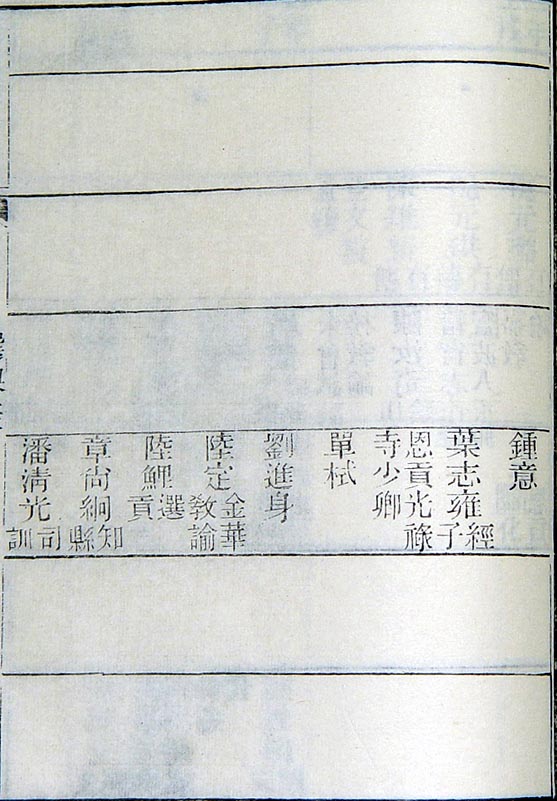 鍾意
葉志雍經子
恩貢光祿
寺少卿
單栻
劉進身
陸定金華教諭
陸鯉選貢
章尙絅知縣
潘淸光司訓